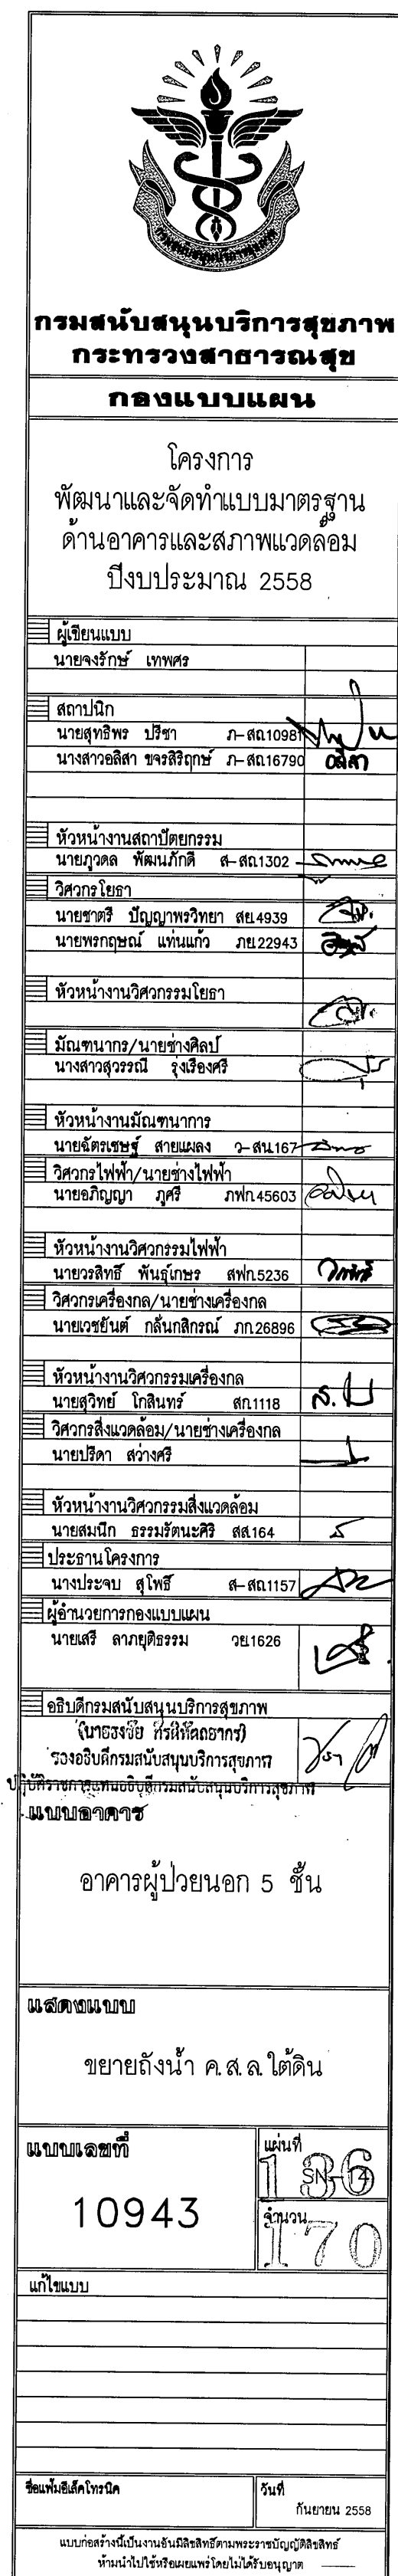 กรมสนับสนุนบริการสุขภาพ
กรมสนับสนุนบริการสุขภาพ
กระทรวงสาธารณสุข
กองแบบแผน
โครงการ
พัฒนาและจัดทำแบบมาตรฐาน
ด้านอาคารและสภาพแวดล้อม
ปีงบประมาณ 2558
ผู้เขียนแบบ
นายจงรักษ์ เทพศร
สถาปนิก
นายสุทธิพร ปรีชา ภ-สถ.10981
นางสาวอลิสา ขจรสิริฤกษ์ ภ-สถ.16790 อลิสา
หัวหน้างานสถาปัตยกรรม
นายภูวดล พัฒนภักดี ส-สถ.1302
วิศวกรโยธา
นายชาตรี ปัญญาพรวิทยา สย.4939
นายพรกฤษณ์ แท่นแก้ว ภย.22943
หัวหน้างานวิศวกรรมโยธา
มัณฑนากร/นายช่างศิลป์
นางสาวสุวรรณี รุ่งเรืองศรี
หัวหน้างานมัณฑนาการ
นายฉัตรเชษฐ์ สายแผลง ว-สน.167
วิศวกรไฟฟ้า/นายช่างไฟฟ้า
นายอภิญญา ภูศรี ภฟก.45603
หัวหน้างานวิศวกรรมไฟฟ้า
นายวรสิทธิ์ พันธุ์เกษร สฟก.5236
วิศวกรเครื่องกล/นายช่างเครื่องกล
นายเวชยันต์ กลั่นกสิกรณ์ ภก.26896
หัวหน้างานวิศวกรรมเครื่องกล
นายสุวิทย์ โกสินทร์ สก.1118
วิศวกรสิ่งแวดล้อม/นายช่างเครื่องกล
นายปรีดา สว่างศรี
หัวหน้างานวิศวกรรมสิ่งแวดล้อม
นายสมนึก ธรรมรัตนะศิริ สส.164
ประธานโครงการ
นางประจบ สุโพธิ์ ส-สถ.1157
ผู้อำนวยการกองแบบแผน
นายเสรี ลาภยุติธรรม วย.1626
อธิบดีกรมสนับสนุนบริการสุขภาพ
รองอธิบดีกรมสนับสนุนบริการสุขภาพ
ปฏิบัติราชการแทนอธิบดีกรมสนับสนุนบริการสุขภาพ
แบบอาคาร
อาคารผู้ป่วยนอก 5 ชั้น
แสดงแบบ
ขยายถังน้ำ ค.ส.ล.ใต้ดิน
แบบเลขที่
10943
แผ่นที่
136
SN-14
จำนวน
170
แก้ไขแบบ
ชื่อแฟ้มอีเล็คโทรนิค
วันที่
กันยายน 2558
แบบก่อสร้างนี้เป็นงานอันมีลิขสิทธิ์ตามพระราชบัญญัติลิขสิทธ์
ห้ามนำไปใช้หรือเผยแพร่โดยไม่ได้รับอนุญาต